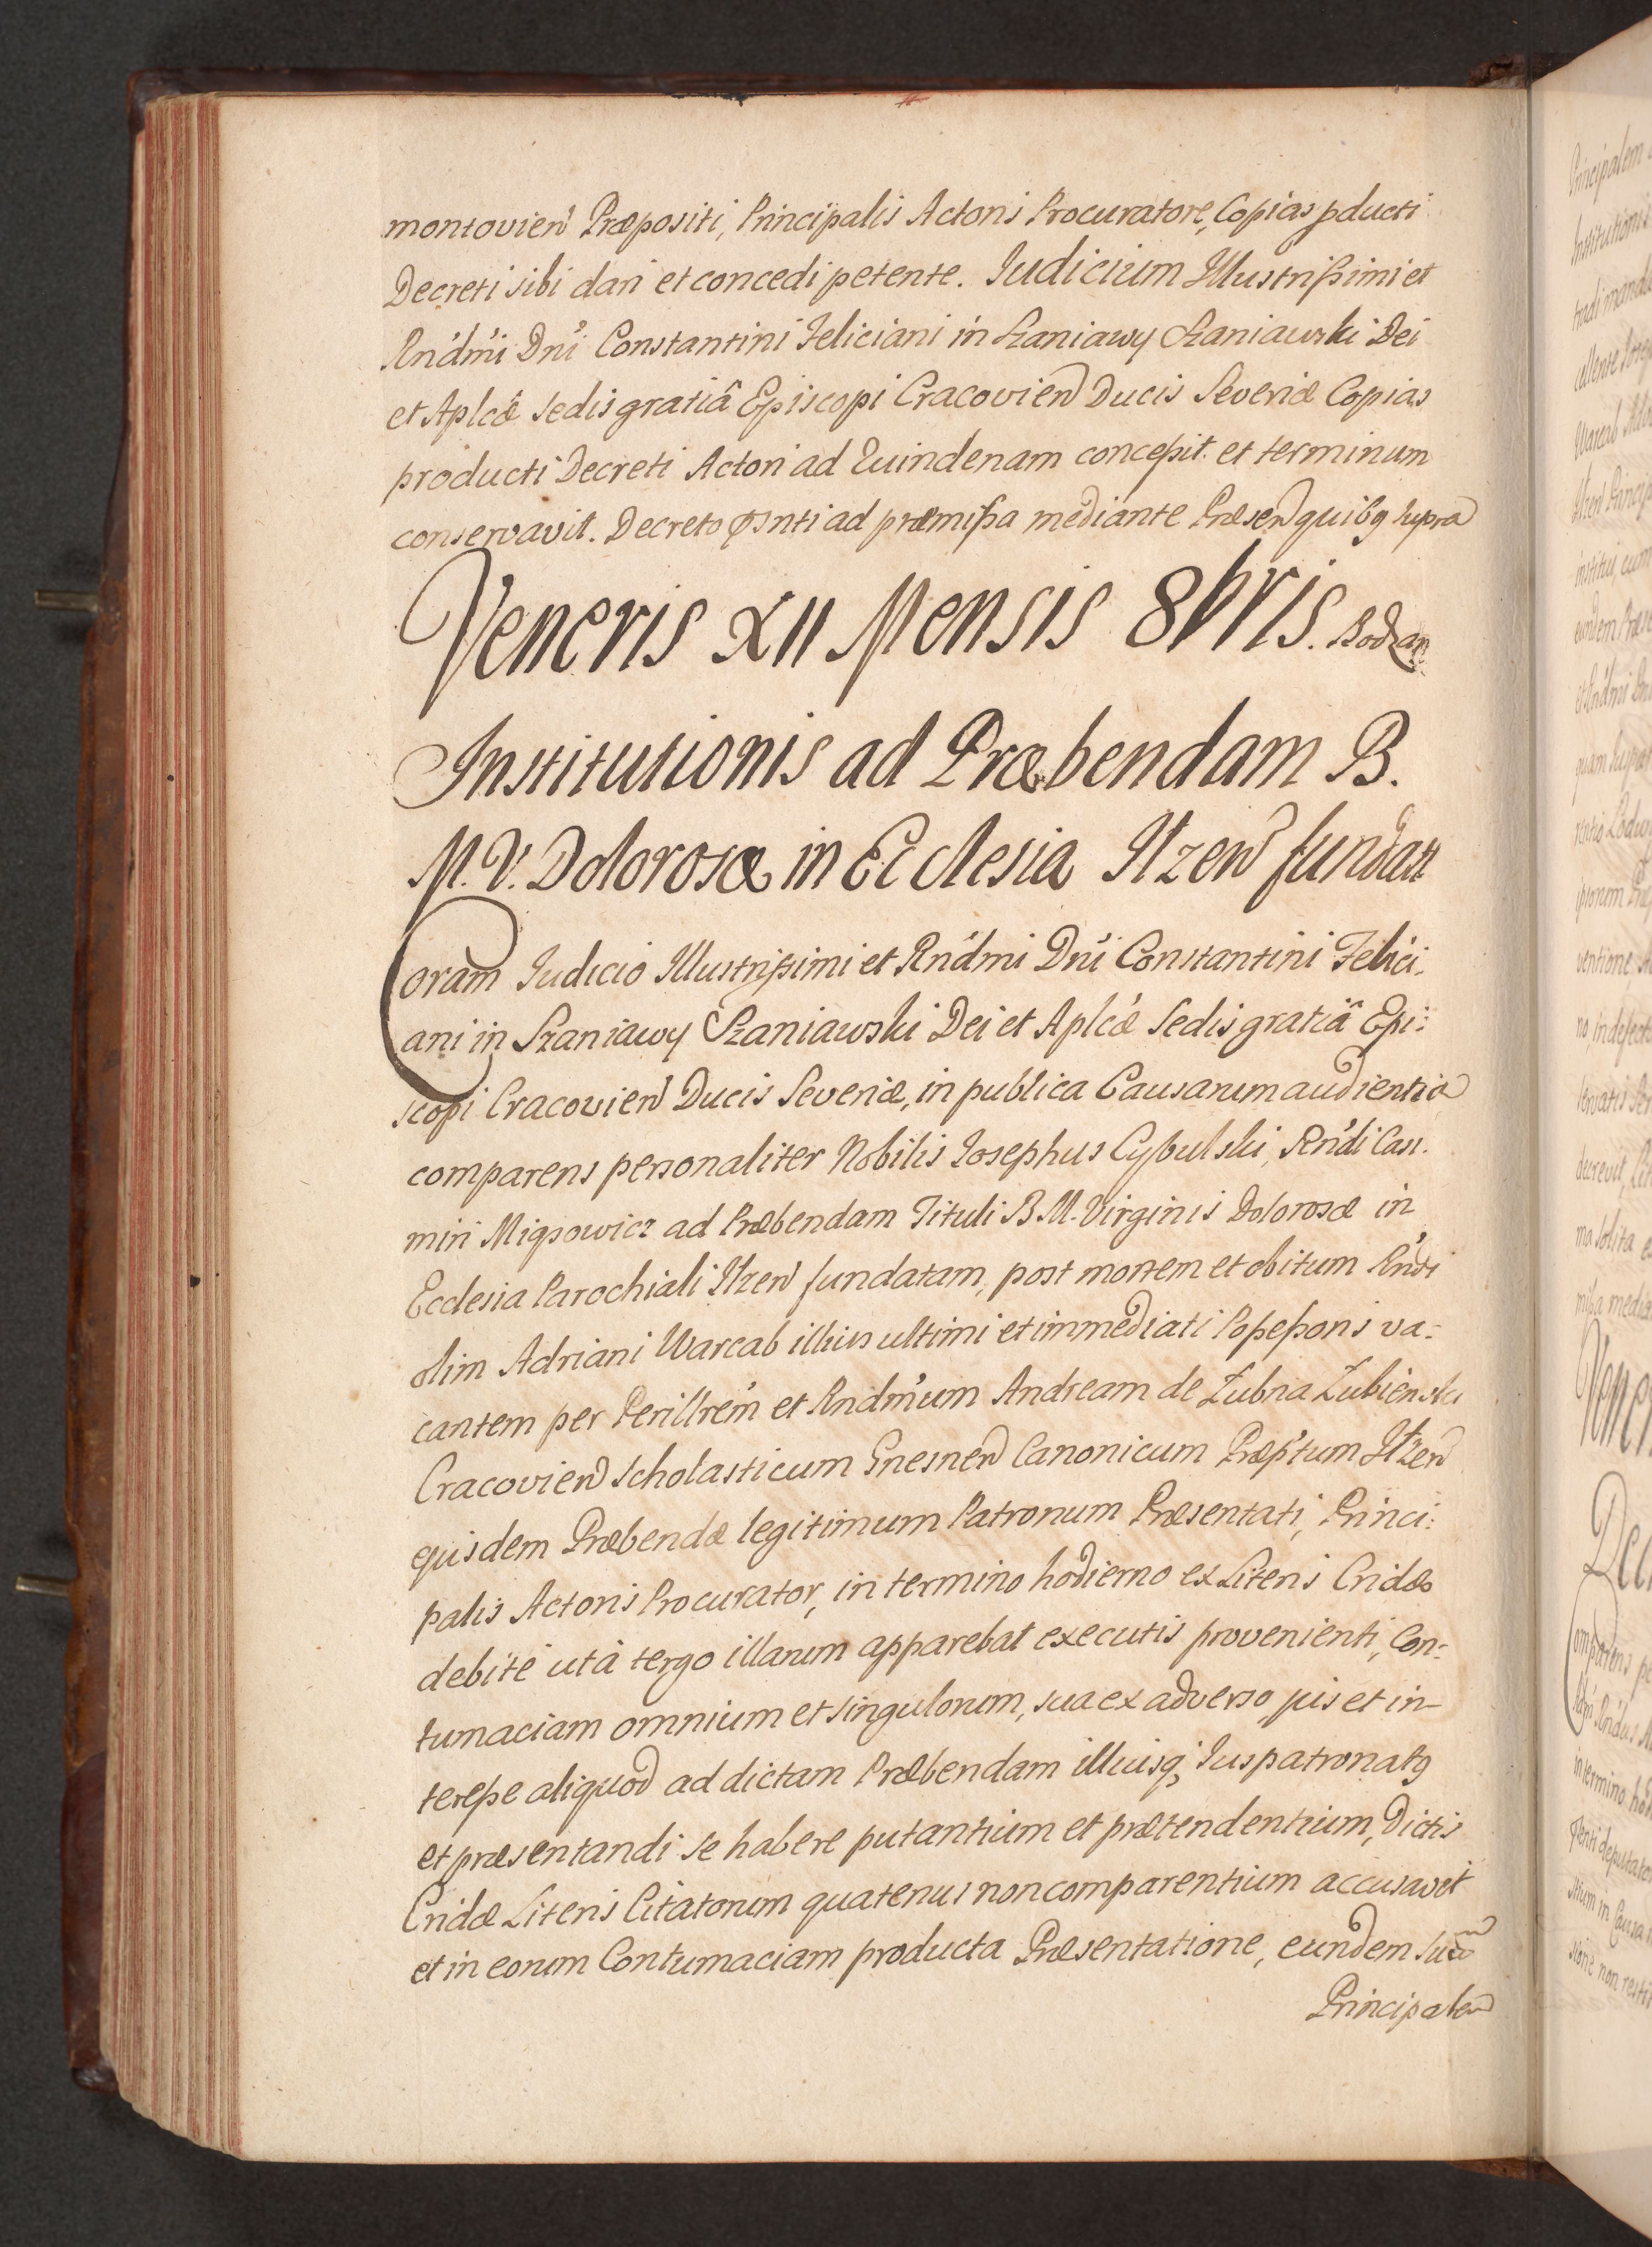 montovien Præpositi, Principalis Actoris Procuratore, Copias pducti
Decreti sibi dari et concedi petente. Iudicium Illustrißimi et
Rndmi Dni Constantini Feliciani in Szaniawy Szaniawski Dei
et Aplcæ Sedis gratiâ Episcopi Cracovien Ducis Severiæ Copias
producti Decreti Actori ad Quindenam conceßit et terminum
conservavit. Decreto ad præmißa mediante Præsen quibq supra
Veneris XII Mensis 8bris. Bodzan
Institutionis ad Præbendam B.
M. V. Dolorosæ in Ecclesia Ilzen fundat
Coram Iudicio Illustrißimi et Rndmi Dni Constantini Felici-
ani in Szaniawy Szaniawski Dei et Aplcæ Sedis gratiâ Epi:
scopi Cracovien Ducis Severiæ, in publica Causarum audientia
comparens personaliter Nobilis Iosephus Cybulski, Rndi Casi-
miri Migsowicz ad Præbendam Tituli B. M. Virginis Dolorosæ in
Ecclesia Parochiali Ilzen fundatam, post mortem et obitum Rndi
olim Adriani Warcab illius ultimi et immediati Poßeßoris va:
cantem per Perillrem et Rndmum Andream de Łubna Łubienski
Cracovien Scholasticum Gnesnen Canonicum Præptum Ilzen
ejusdem Præbendæ legitimum Patronum Præsentati, Princi:
palis Actoris Procurator, in termino hodierno ex Literis Cridæ
debite ut à tergo illarum apparebat executis provenienti, Con-
tumaciam omnium et singulorum, sua ex adverso, jus et in-
tereße aliquod ad dictam Præbendam illiusq; Iuspatronatq
et præsentandi se habere putantium et prætendentium, Dictis
Cridæ Literis Citatorum quatenus non comparentium accusavit
et in eorum Contumaciam producta Præsentatione, eundem suum
Principalem